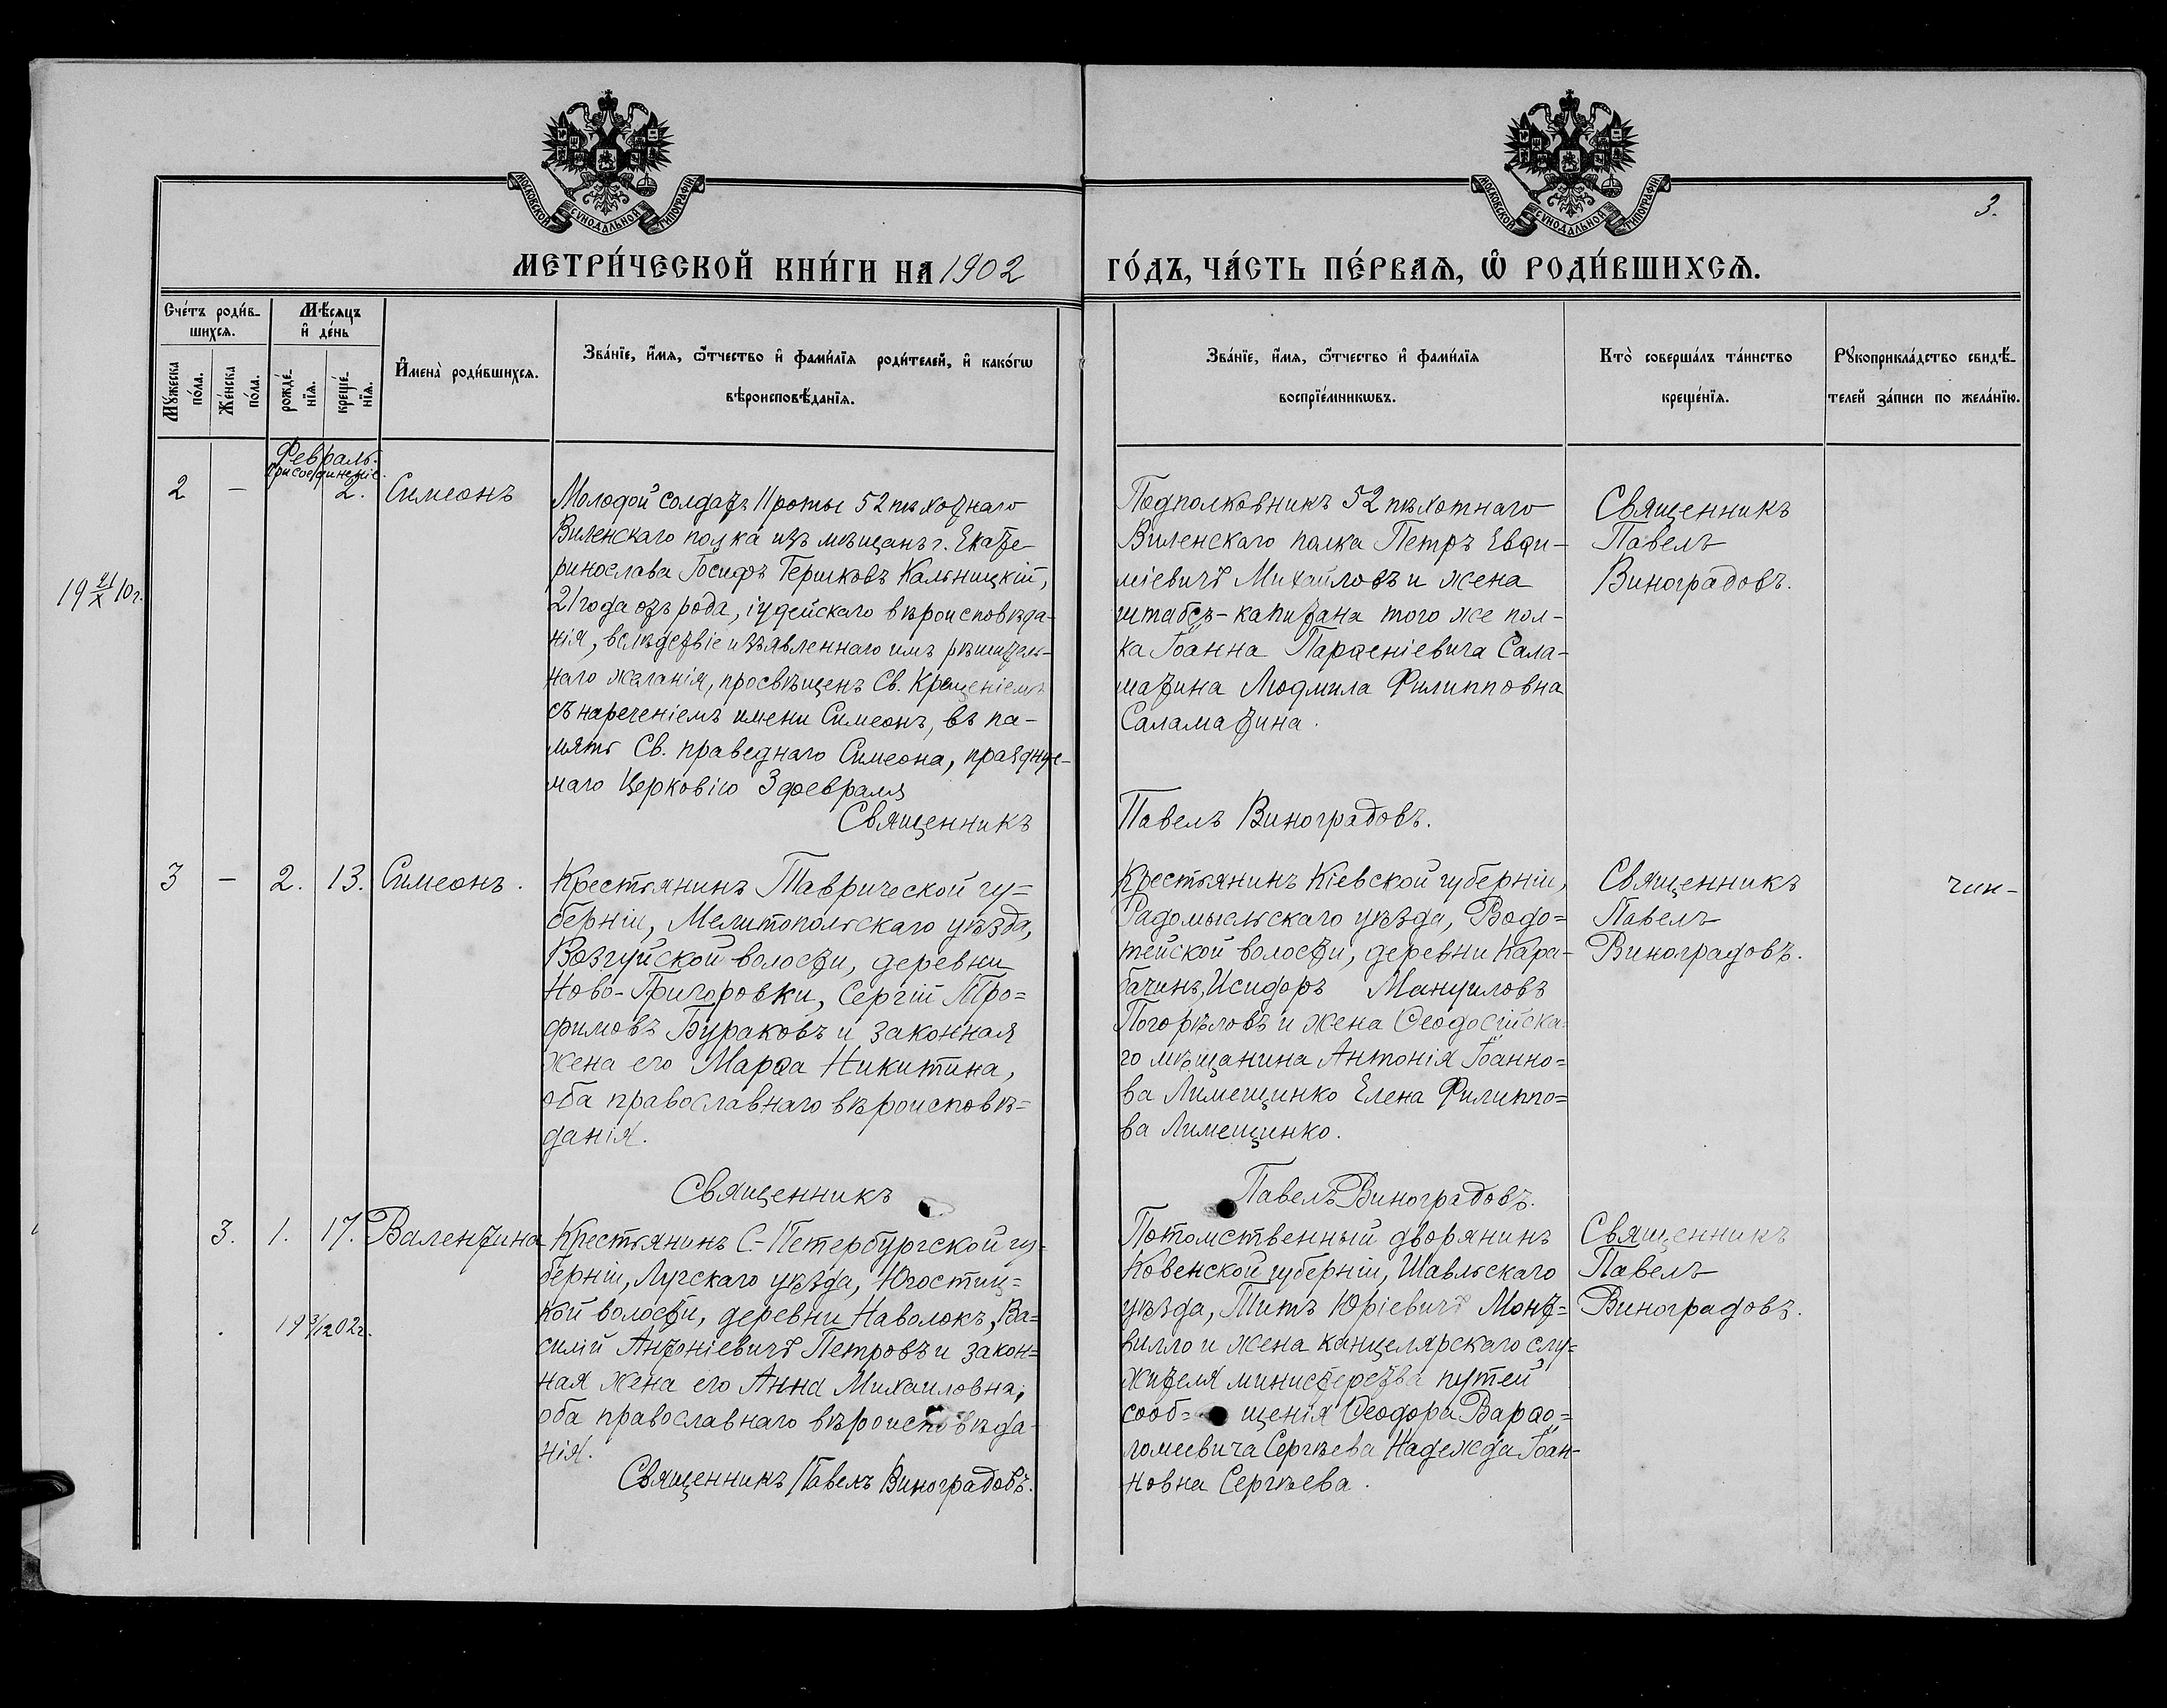 МОСКОВСКОЙ СѴНОДАЛЬНОЙ ТИПОГРАФІИ
МОСКОВСКОЙ СѴНОДАЛЬНОЙ ТИПОГРАФІИ
3.
МЕТРИ́ЧЕСКОЙ КНИ́ГИ НА 1902
ГО́ДЪ, ЧА́СТЬ ПЕ́РВАѦ, Ѽ РОДИ́ВШИХСѦ.
Сче́тъ роди́в-
шихсѧ.
Мꙋ́жеска
по́ла.
Же́нска
по́ла.
Мѣ́сѧцъ
и҆ де́нь
рожде́-
нїѧ.
креще́-
нїѧ.
И҆мена̀ роди́вшихсѧ.
Зва́нїе, и҆́мѧ, ѻ҆́тчество и҆ фами́лїѧ роди́телей, и҆ како́гѡ
вѣроисповѣ́данїѧ.
Зва́нїе, и҆́мѧ, ѻ҆́тчество и҆ фами́лїѧ
воспрїе́мникѡвъ.
Кто̀ соверша́лъ та́инство
креще́нїѧ.
Рꙋкоприкла́дство свидѣ́-
телей за́писи по жела́нїю.
Февраль.
Присоединеніе.
2
-
2.
Симеонъ
Молодой солдатъ 11 роты 52 пѣхотнаго
Виленскаго полка изъ мѣщанъ г. Екате
ринослава Іосифъ Гершковъ Кальницкій,
21 года отъ рода, іудейскаго вѣроисповѣда-
нія, вслѣдствіе изъявленнаго имъ рѣшитель-
наго желанія, просвѣщенъ Св. Крещеніемъ
съ нареченіемъ имени Симеонъ, въ па-
мять Св. праведнаго Симеона, праздну е-
маго Церковію 3 февраля
Священникъ
19 21/X 10 г.
Подполковникъ 52 пѣхотнаго
Виленскаго полка Петръ Евѳи-
міевичъ Михайловъ и жена
штабсъ-капитана того же пол-
ка Іоанна Парѳеніевича Сала-
матина Людмила Филипповна
Саламатина.
Павелъ Виноградовъ.
Священникъ
Павелъ
Виноградовъ.
3
-
2.
13.
Симеонъ.
Крестьянинъ Таврической гу=
берніи, Мелитопольскаго уѣзда,
волости, деревни
Ново-Григоровки, Сергій Тро=
фимовъ Бураковъ и законная
жена его Марѳа Никитина,
оба православнаго вѣроисповѣ=
данія.
Священникъ
Крестьянинъ Кіевской губерніи,
Радомысльскаго уѣзда, Водо=
тейской волости, деревни Кара-
бачинъ, Исидоръ Мануиловъ
Погорѣловъ и жена Ѳеодосійска=
го мѣщанина Антонія Іоанно=
ва Лимещинко Елена Филиппо=
ва Лимещинко.
Павелъ Виноградовъ.
Священникъ
Павелъ
Виноградовъ.
чин-
3.
1.
17.
Валентина
19 3/12 02 г.
Крестьянинъ С.-Петербургской гу-
берніи, Лугскаго уѣзда, Югостиц=
кой волости, деревни Наволокъ, Ва=
силій Антоніевичъ Петровъ и закон=
ная жена его Анна Михаиловна,
оба православнаго вѣроисповѣда-
нія.
Священникъ Павелъ Виноградовъ.
Потомственный дворянинъ
Ковенской губерніи, Шавльскаго
уѣзда, Титъ Юріевичъ Монт=
вилло и жена канцелярскаго слу=
жителя министерства путей
сооб= щенія Ѳеодора Варѳо=
ломеевича Сергѣева Надежда Іоан-
новна Сергѣева.
Священникъ
Павелъ
Виноградовъ.